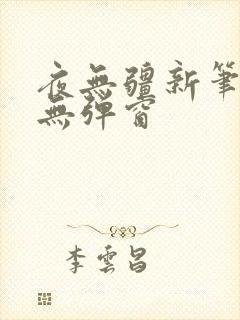 夜無疆新筆
無彈窗
李雲昌